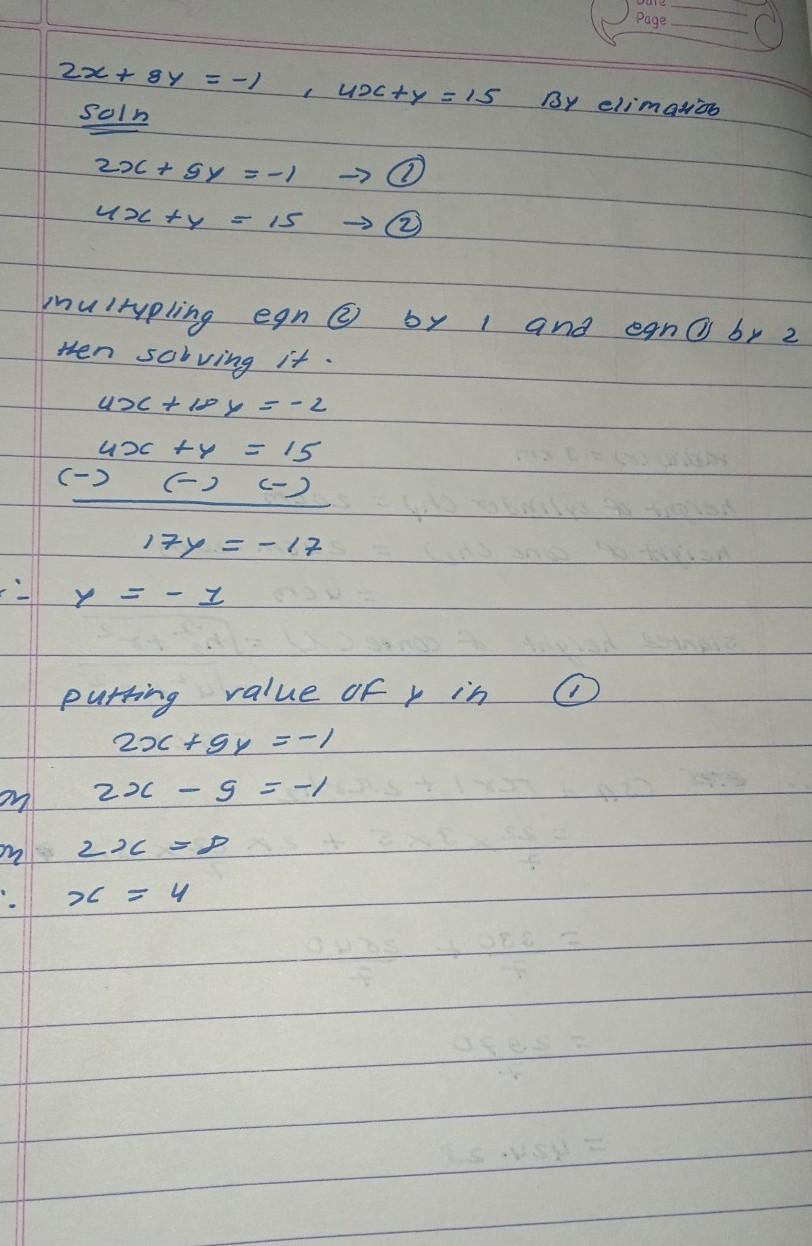 Date
Page
2x + 9y = -1 , 4x+y = 15 By elimation
Soln
2x + 9y = -1 → ①
4x + y = 15 → ②
multypling eqn ② by 1 and eqn ① by 2
then solving it.
4x + 18y = -2
4x + y = 15
(-) (-) (-)
17y = -17
∴ y = - 1
putting value of y in ①
2x + 9y = -1
or 2x - 9 = -1
or 2x = 8
∴ x = 4